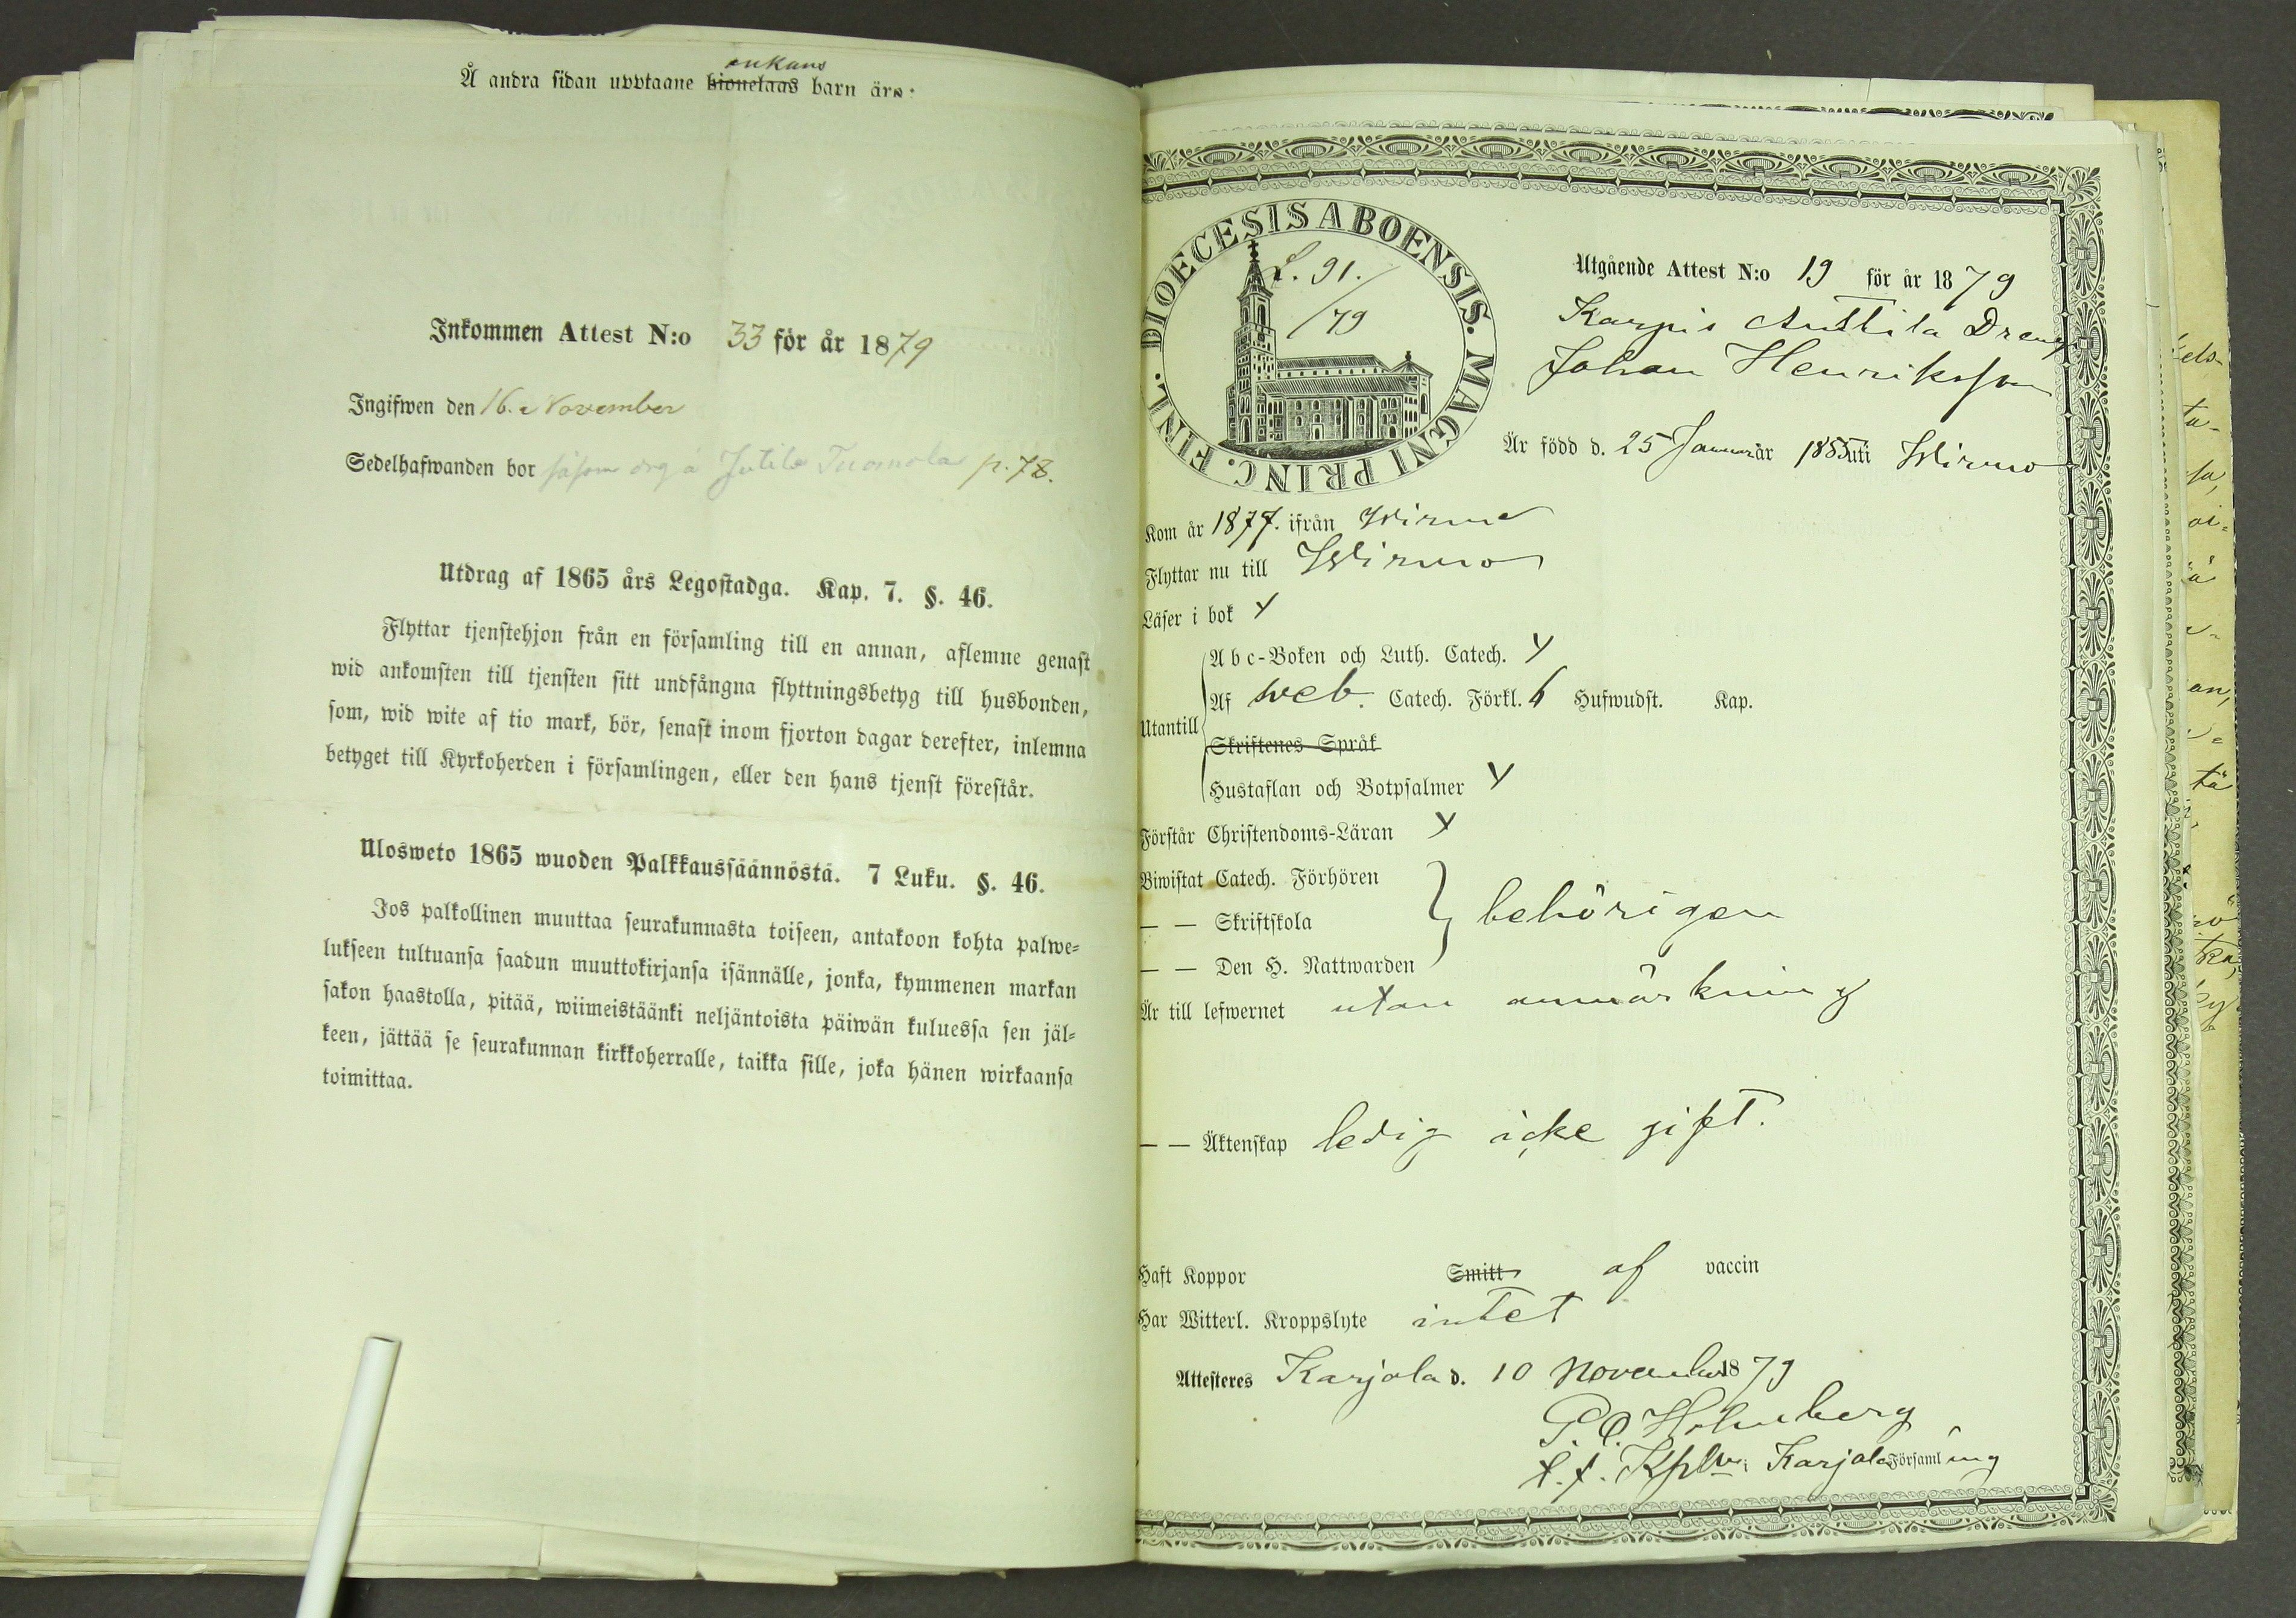 enkans
Å andra sidan upptagne hionelags barn äro:
Inkommen Attest N:o 33 för år 1879
Ingifwen den 16. November
Sedelhafwanden bor såsom drg å Jutila Tuomola p. 78.
Utdrag af 1865 års Legostadga. Kap. 7. §. 46.
Flyttar tjenstehjon från en församling till en annan, aflemne genast
wid ankomsten till tjensten sitt undfångna flyttningsbetyg till husbonden,
som, wid wite af tio mark, bör, senast inom fjorton dagar derefter, inlemna
betyget till Kyrkoherden i församlingen, eller den hans tjenst förestår.
Ulosweto 1865 wuoden Palkkaussäännöstä. 7 Luku. §. 46.
Jos palkollinen muuttaa seurakunnasta toiseen, antakoon kohta palwe=
lukseen tultuansa saadun muuttokirjansa isännälle, jonka, kymmenen markan
sakon haastolla, pitää, wiimeistäänki neljäntoista päiwän kuluessa sen jäl=
keen, jättää se seurakunnan kirkkoherralle, taikka sille, joka hänen wirkaansa
toimittaa.
DIOECESIS ABOENSIS. MAGNI PRINC. FINL.
L. 91.
/79
Utgående Attest N:o 19 för år 1879
Karpis Anttila Dreng
Johan Henriksson
Är född d. 25 Januar år 1855 uti Wirmo
Kom år 1877. ifrån Wirmo
Flyttar nu till Wirmo
Läser i bok
Abc-Boken och Luth. Catech.
Af Catech. Förkl. 6 Hufwudst. Kap.
Utantill
Skriftenes Språk
Hustaflan och Botpsalmer
Förstår Christendoms-Läran
Biwistat Catech. Förhören
— — Skriftskola behörigen
— — Den H. Nattwarden
Är till lefwernet utan anmärkning
— — Äktenskap ledig icke gift.
Haft Koppor Smitt af vaccin
Har Witterl. Kroppslyte intet
Attesteres Karjola d. 10 November 1879
Holmberg
Karjala Församling